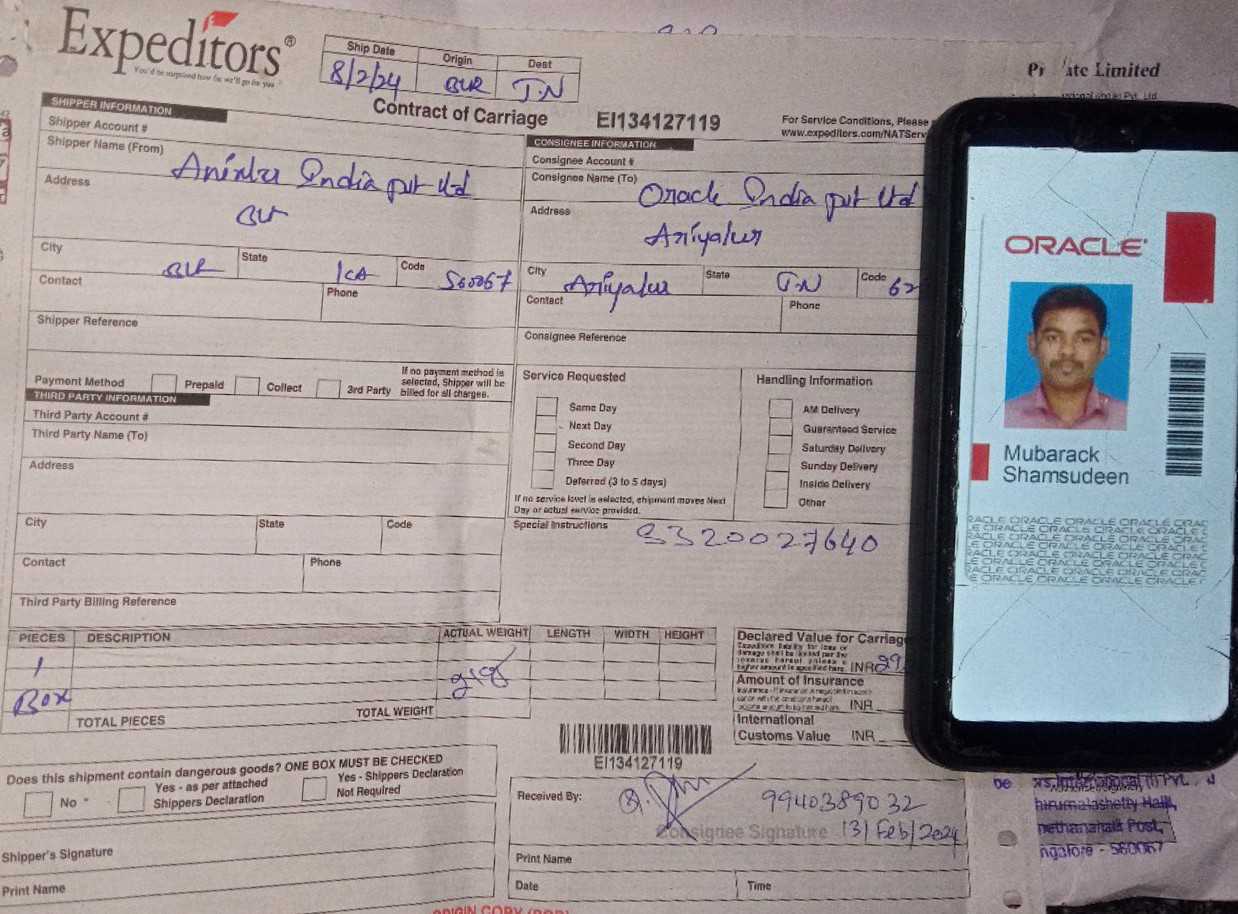 Expeditors®
You'd be surprised how far we'll go for you
Ship Date Origin Dest
8/2/24 BLR T.N
Contract of Carriage EI134127119
For Service Conditions, Please
www.expeditors.com/NATServ
Limited
SHIPPER INFORMATION
Shipper Account #
Shipper Name (From)
India pvt ltd
Address
City BLR State KA Code 560067
Contact Phone
Shipper Reference
Payment Method Prepaid Collect 3rd Party
If no payment method is
selected, Shipper will be
billed for all charges.
CONSIGNEE INFORMATION
Consignee Account #
Consignee Name (To) Oracle India pvt ltd
Address Ariyalur
City Ariyalur State T.N Code 62
Contact Phone
Consignee Reference
THIRD PARTY INFORMATION
Third Party Account #
Third Party Name (To)
Address
City State Code
Contact Phone
Third Party Billing Reference
Service Requested
Same Day
Next Day
Second Day
Three Day
Deferred (3 to 5 days)
If no service level is selected, shipment moves Next
Day or actual service provided.
Handling Information
AM Delivery
Guaranteed Service
Saturday Delivery
Sunday Delivery
Inside Delivery
Other
Special Instructions 3320027640
PIECES DESCRIPTION ACTUAL WEIGHT LENGTH WIDTH HEIGHT
1
Box
TOTAL PIECES TOTAL WEIGHT
Declared Value for Carriage
INR 29
Amount of Insurance
INR
International
Customs Value INR
EI134127119
Does this shipment contain dangerous goods? ONE BOX MUST BE CHECKED
No
Yes - as per attached
Shippers Declaration
Yes - Shippers Declaration
Not Required
Shipper's Signature
Print Name
Received By: 9940389032
Consignee Signature 13/Feb/2024
Print Name
Date Time
ORIGIN COPY (POD)
ORACLE
Mubarack
Shamsudeen
ORACLE ORACLE ORACLE ORACLE
Post,
ngalore - 560067